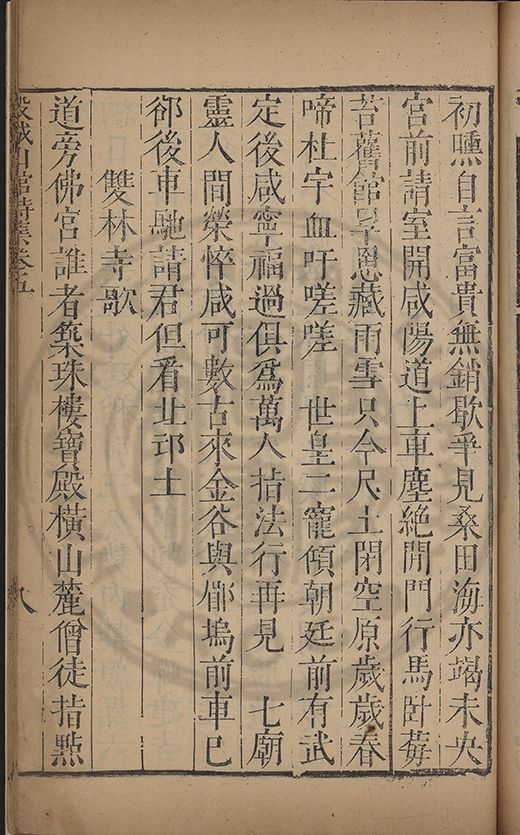 初爇自言富貴無銷歇乎見桑田海亦竭未央
宮前請室開咸陽道上車塵絕閒門行馬卧莓
苔舊館罘罳藏雨雪只今尺土閉空原歲歲春
啼杜宇血吁嗟嗟 世皇二寵傾朝廷前有武
定後咸寧福過俱爲萬人指法行再見 七廟
靈人間榮悴咸可數古來金谷與郿塢前車已
卻後車馳請君但看北邙土
雙林寺歌
道旁佛宮誰者築珠樓寶殿橫山麓僧徒指點
穀城山館詩集卷五
八